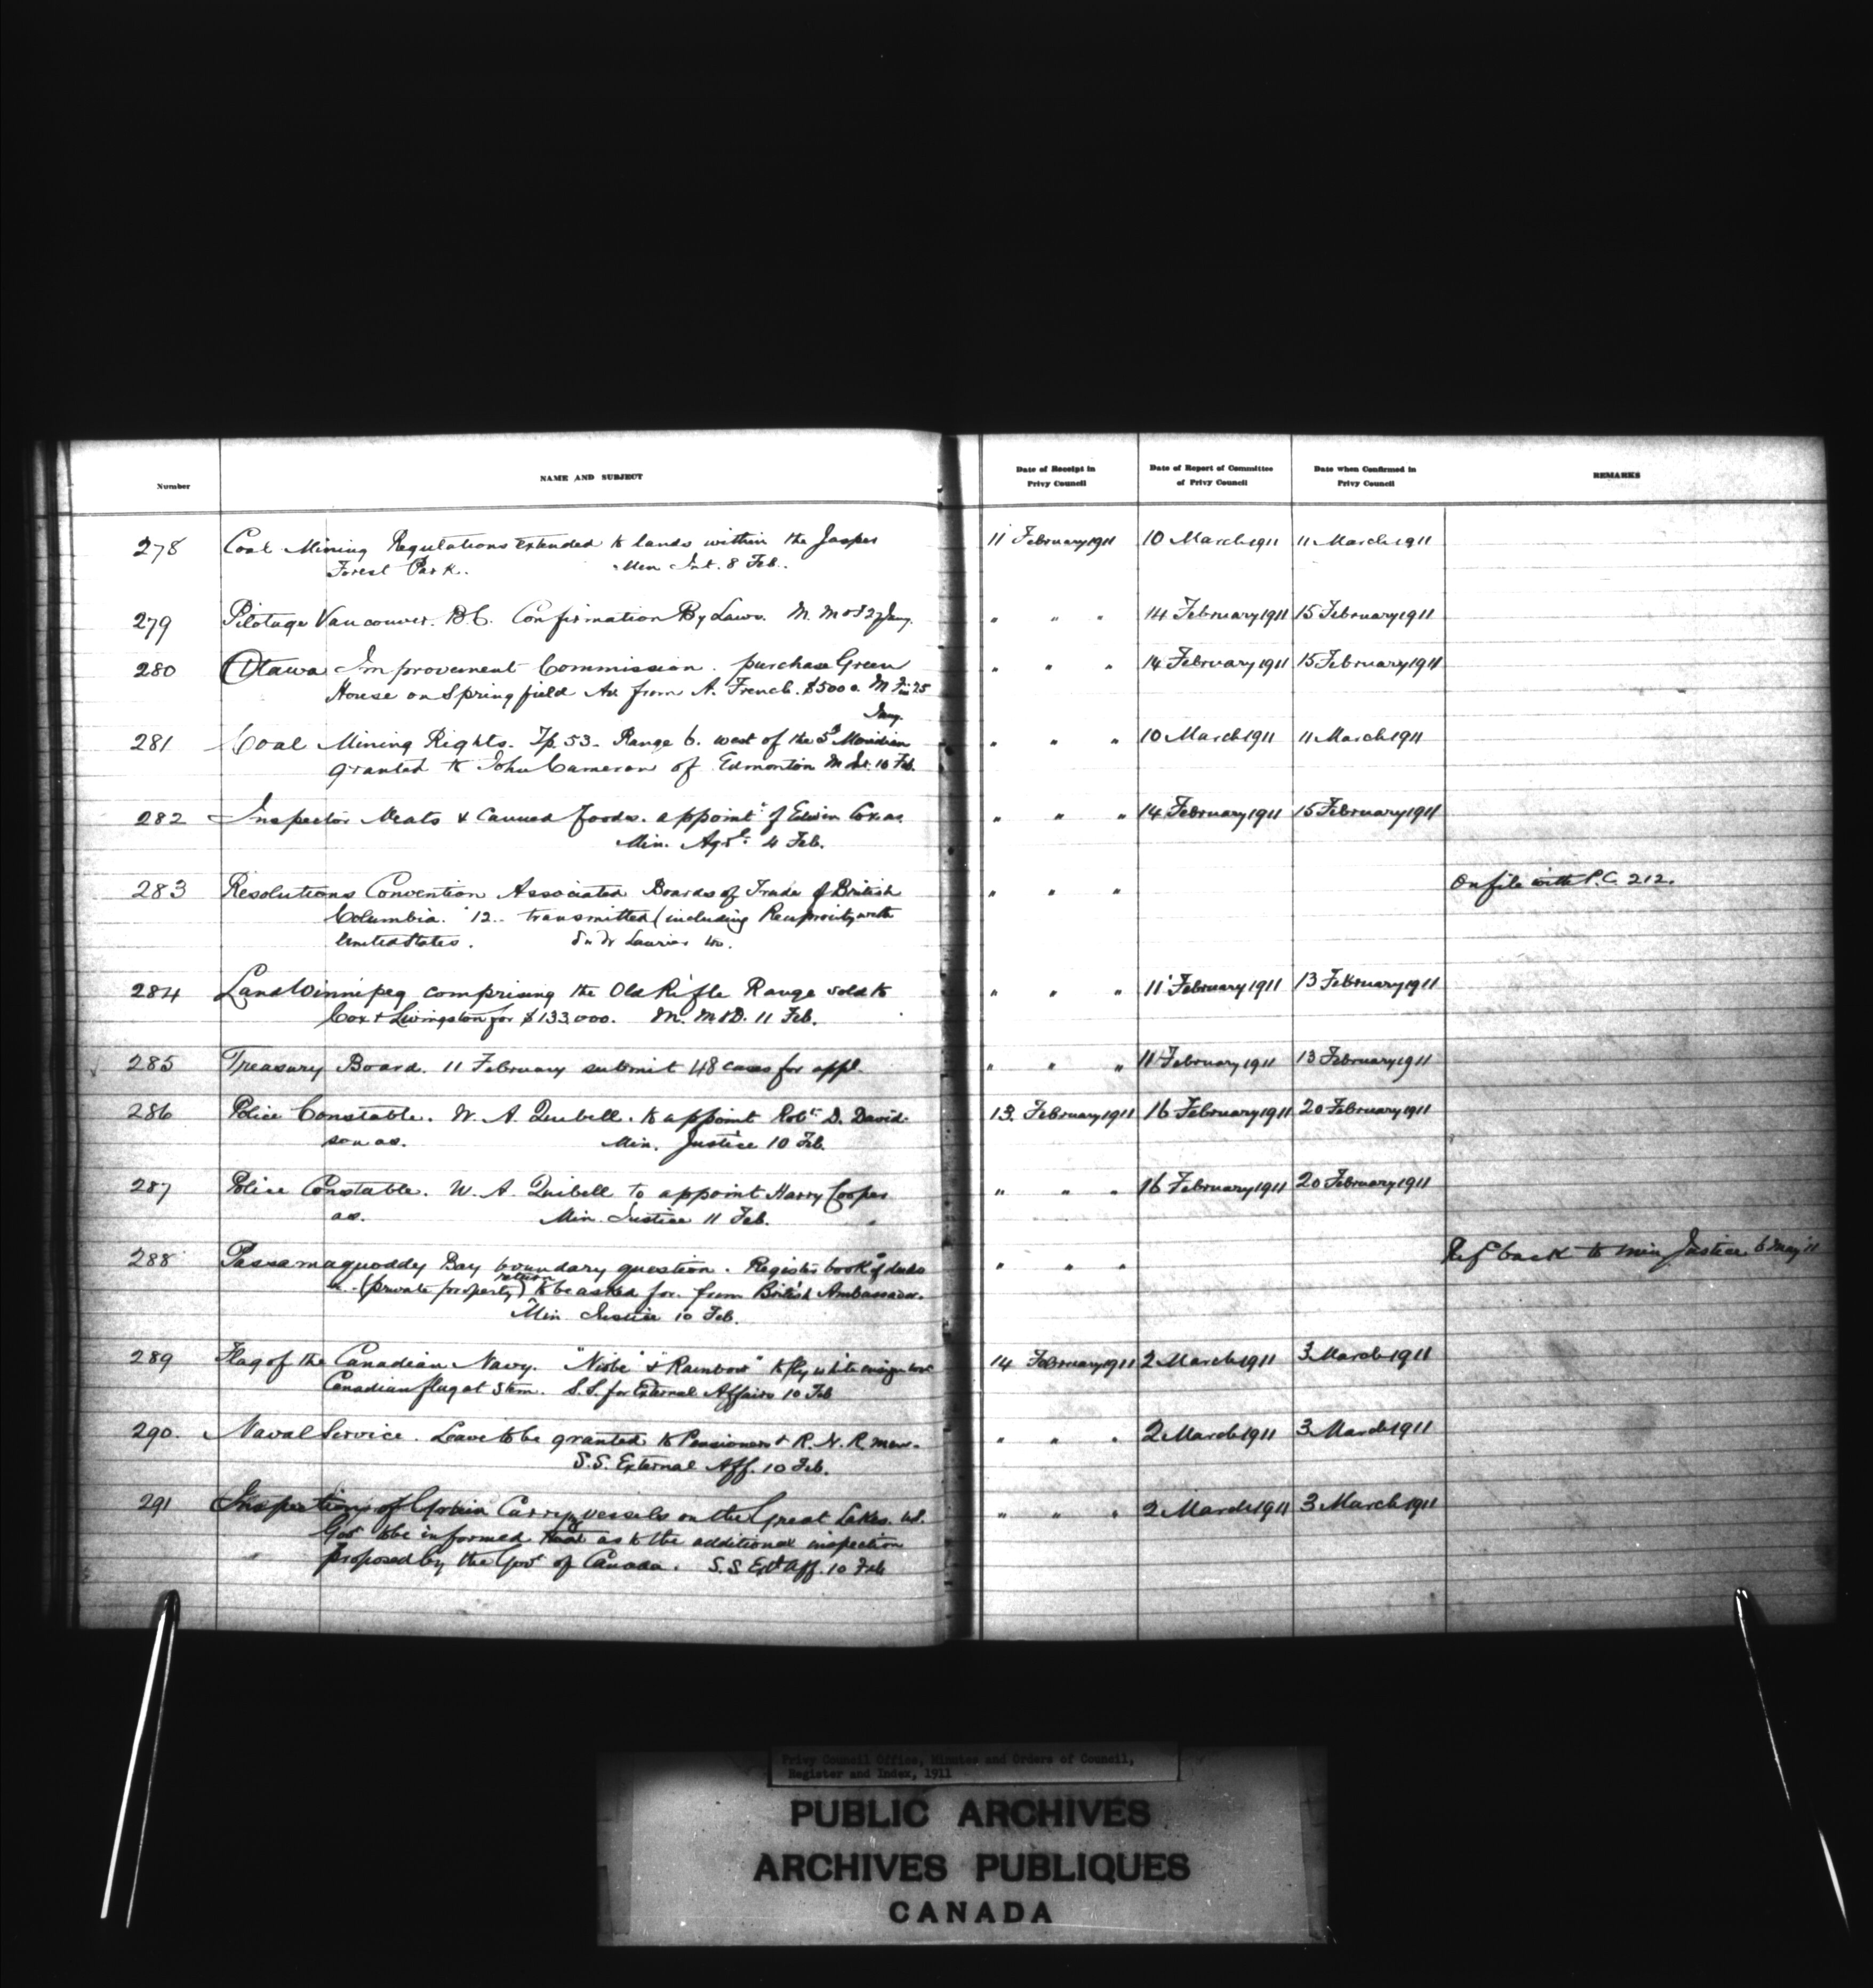 Number
NAME AND SUBJECT
Date of Receipt in
Privy Council
Date of Report of Committee
of Privy Council
Date when Confirmed in
Privy Council
REMARKS
278 Coal Mining Regulations extended to lands within the Jasper 11 February 1911 10 March 1911 11 March 1911
Forest Park. Min Int. 8 Feb.
279 Pilotage Vancouver. B.C. Confirmation By Laws. M. M & F 27 Jany. " " " 14 February 1911 15 February 1911
280 Ottawa Improvement Commission. purchase Green " " " 14 February 1911 15 February 1911
House on Springfield Av from A. French. $5000. M Fin 25
Jany.
281 Coal Mining Rights. Tp. 53. Range 6. west of the 5th Meridian " " " 10 March 1911 11 March 1911
granted to John Cameron of Edmonton M Int. 10 Feb.
282 Inspector Meats & Canned foods. appointt of Edwin Cox as. " " " 14 February 1911 15 February 1911
Min. Agr. 4 Feb.
283 Resolutions Convention Associated Boards of Trade of British " " " On file with P.C. 212.
Columbia. 12. transmitted (including Reciprocity with
United States. Sir W Laurier
284 Land Winnipeg comprising the Old Rifle Range sold to " " " 11 February 1911 13 February 1911
Cox & Livingston for $133,000. M. M & D. 11 Feb.
285 Treasury Board. 11 February submit 48 cases for appl. " " " 11 February 1911 13 February 1911
286 Police Constable. W. A. Quibell. to appoint Robt D. David- 13. February 1911 16 February 1911 20 February 1911
son as. Min. Justice 10 Feb.
287 Police Constable. W. A. Quibell to appoint Harry Cooper " " " 16 February 1911 20 February 1911
as. Min. Justice 11 Feb.
288 Passamaquoddy Bay boundary question. Registers book of deeds " " " Refd back to Min Justice. 6 May '11
return
(private property) to be asked for from British Ambassador.
Min Justice 10 Feb.
289 Flag of the Canadian Navy. "Niobe" & "Rainbow" to fly white ensign 14 February 1911 2 March 1911 3 March 1911
Canadian flag at stem. S.S. for External Affairs 10 Feb
290. Naval Service. Leave to be granted to Pensioners & R. N. R. men. " " " 2 March 1911 3 March 1911
S.S. External Aff. 10 Feb.
291 Inspection of Grain Carrying vessels on the Great Lakes. U.S. " " " 2 March 1911 3 March 1911
Govt to be informed as to the additional inspection
proposed by the Govt of Canada. S.S Extl Aff. 10 Feb
Privy Council Office, Minutes and Orders of Council,
Register and Index, 1911
PUBLIC ARCHIVES
ARCHIVES PUBLIQUES
CANADA